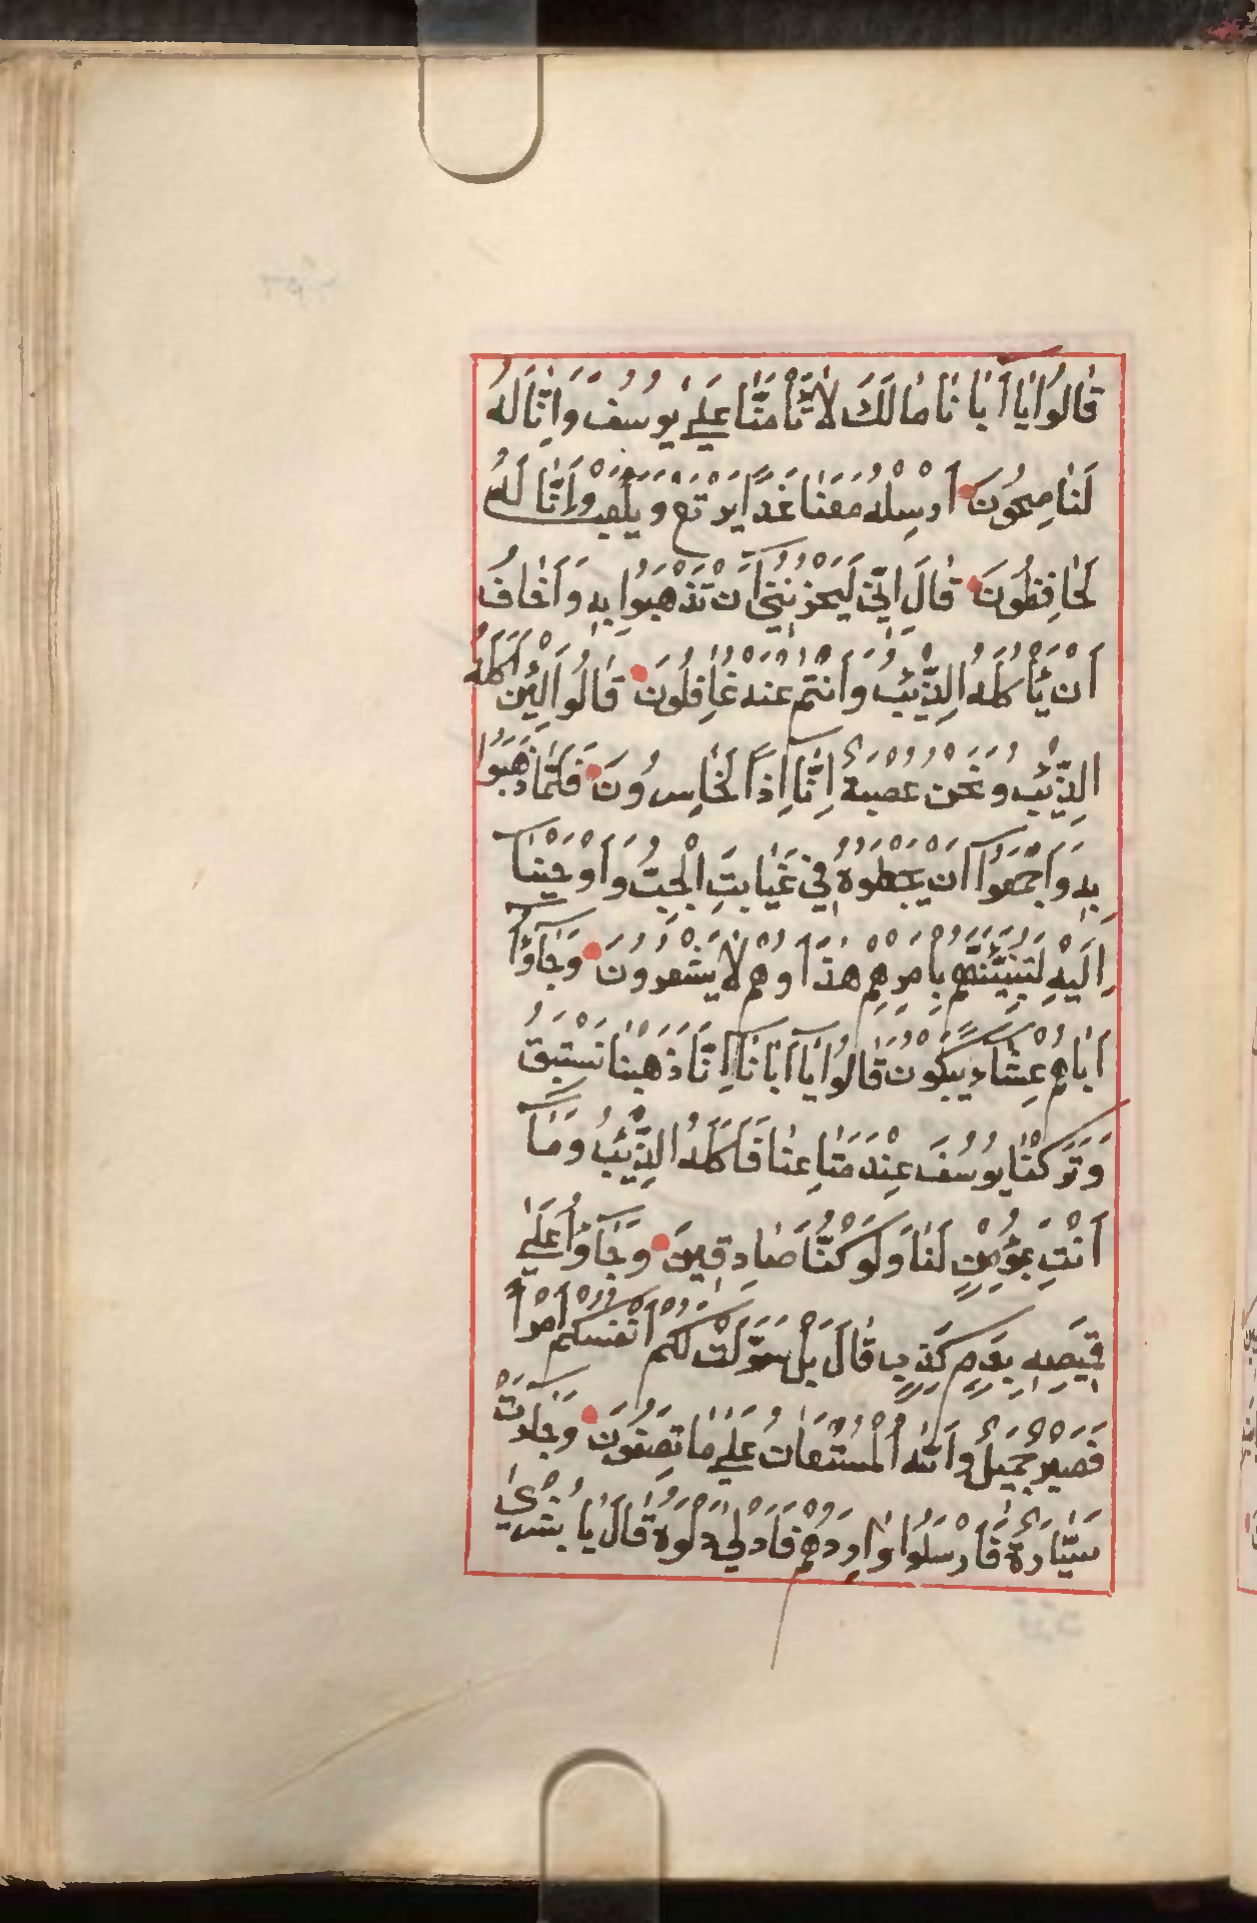 قَالُوا يَا أَبَانَا مَا لَكَ لَا تَأْمَنَّا عَلَى يُوسُفَ وَإِنَّا لَهُ
لَنَاصِحُونَ أَرْسِلْهُ مَعَنَا غَدًا يَرْتَعْ وَيَلْعَبْ وَإِنَّا لَهُ
لَحَافِظُونَ قَالَ إِنِّي لَيَحْزُنُنِي أَنْ تَذْهَبُوا بِهِ وَأَخَافُ
أَنْ يَأْكُلَهُ الذِّئْبُ وَأَنْتُمْ عَنْهُ غَافِلُونَ قَالُوا لَئِنْ أَكَلَهُ
الذِّئْبُ وَنَحْنُ عُصْبَةٌ إِنَّا إِذًا لَخَاسِرُونَ فَلَمَّا ذَهَبُوا
بِهِ وَأَجْمَعُوا أَنْ يَجْعَلُوهُ فِي غَيَابَتِ الْجُبِّ وَأَوْحَيْنَا
إِلَيْهِ لَتُنَبِّئَنَّهُمْ بِأَمْرِهِمْ هَذَا وَهُمْ لَا يَشْعُرُونَ وَجَاؤُا
أَبَاهُمْ عِشَاءً يَبْكُونَ قَالُوا يَا أَبَانَا إِنَّا ذَهَبْنَا نَسْتَبِقُ
وَتَرَكْنَا يُوسُفَ عِنْدَ مَتَاعِنَا فَأَكَلَهُ الذِّئْبُ وَمَا
أَنْتَ بِمُؤْمِنٍ لَنَا وَلَوْ كُنَّا صَادِقِينَ وَجَاؤُا عَلَى
قَمِيصِهِ بِدَمٍ كَذِبٍ قَالَ بَلْ سَوَّلَتْ لَكُمْ أَنْفُسُكُمْ أَمْرًا
فَصَبْرٌ جَمِيلٌ وَاللَّهُ الْمُسْتَعَانُ عَلَى مَا تَصِفُونَ وَجَاءَتْ
سَيَّارَةٌ فَأَرْسَلُوا وَارِدَهُمْ فَأَدْلَى دَلْوَهُ قَالَ يَا بُشْرَى